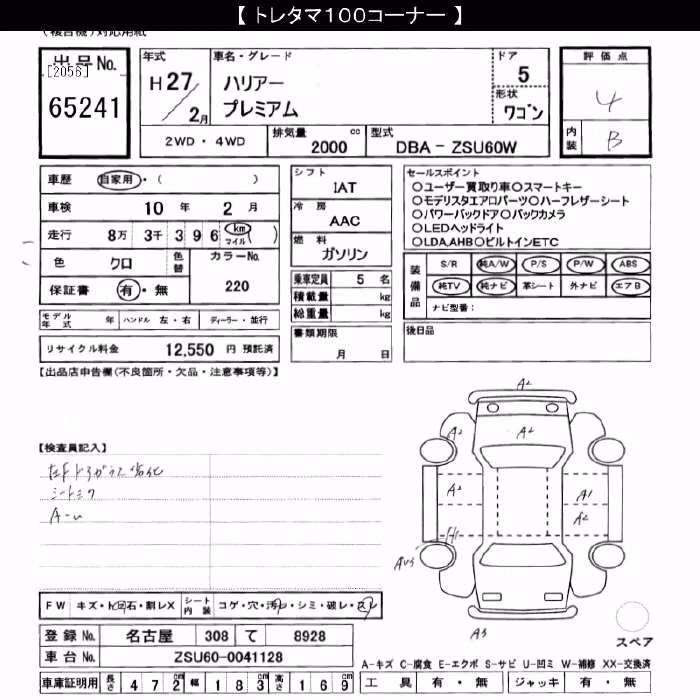 【トレタマ100コーナー】
(複合機)対応用紙
出品No.
[2056]
65241
年式
H27/2月
車名・グレード
ハリアー
プレミアム
ドア
5
形状
ワゴン
評価点
4
内装
B
2WD・4WD
排気量 2000 cc
型式 DBA-ZSU60W
車歴 自家用・( )
車検 10年2月
走行 8万3千396 km マイル ( )
色 クロ
色替
カラーNo. 220
保証書 有・無
モデル年式 年
ハンドル 左・右
ディーラー・並行
リサイクル料金 12,550円 預託済
シフト
IAT
冷房
AAC
燃料
ガソリン
乗車定員 5名
積載量 kg
総重量 kg
書類期限
月 日
セールスポイント
○ユーザー買取り車○スマートキー
○モデリスタエアロパーツ○ハーフレザーシート
○パワーバックドア○バックカメラ
○LEDヘッドライト
○LDA,AHB○ビルトインETC
装備品
S/R 純A/W P/S P/W ABS
純TV 純ナビ 革シート 外ナビ エアB
ナビ型番:
後日品
【出品店申告欄(不良箇所・欠品・注意事項等)】
【検査員記入】
シートミク
A-u
A2
A2
A2
A2
A1
A2
A3
FW キズ・トビ石・割レX
シート内装 コゲ・穴・汚レ・シミ・破レ・スレ
登録No. 名古屋 308 て 8928
車台No. ZSU60-0041128
車庫証明用 長さ 472cm 幅 183cm 高さ 169cm
スペア
A-キズ C-腐食 E-エクボ S-サビ U-凹ミ W-補修 XX-交換済
工具 有・無 ジャッキ 有・無